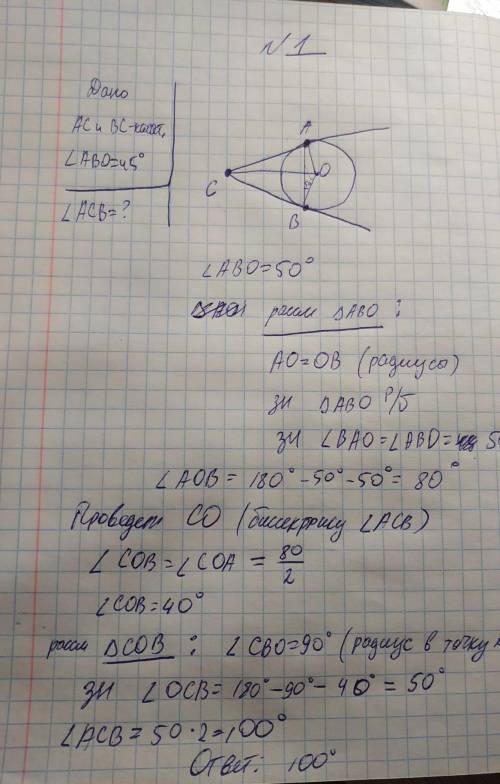 N 1
Дано
AC и BC-касат.
∠ABO=45°
∠ACB=?
A
C
O
B
∠ABO=50°
рассм ΔABO :
AO=OB (радиусы)
зн ΔABO р/б
зн ∠BAO=∠ABO= 5
∠AOB= 180°-50°-50°= 80°
Проведем CO (биссектрису ∠ACB)
∠COB=∠COA = 80/2
∠COB=40°
рассм ΔCOB : ∠CBO=90° (радиус в точку
зн ∠OCB= 180°-90°- 40° = 50°
∠ACB= 50·2=100°
Ответ: 100°